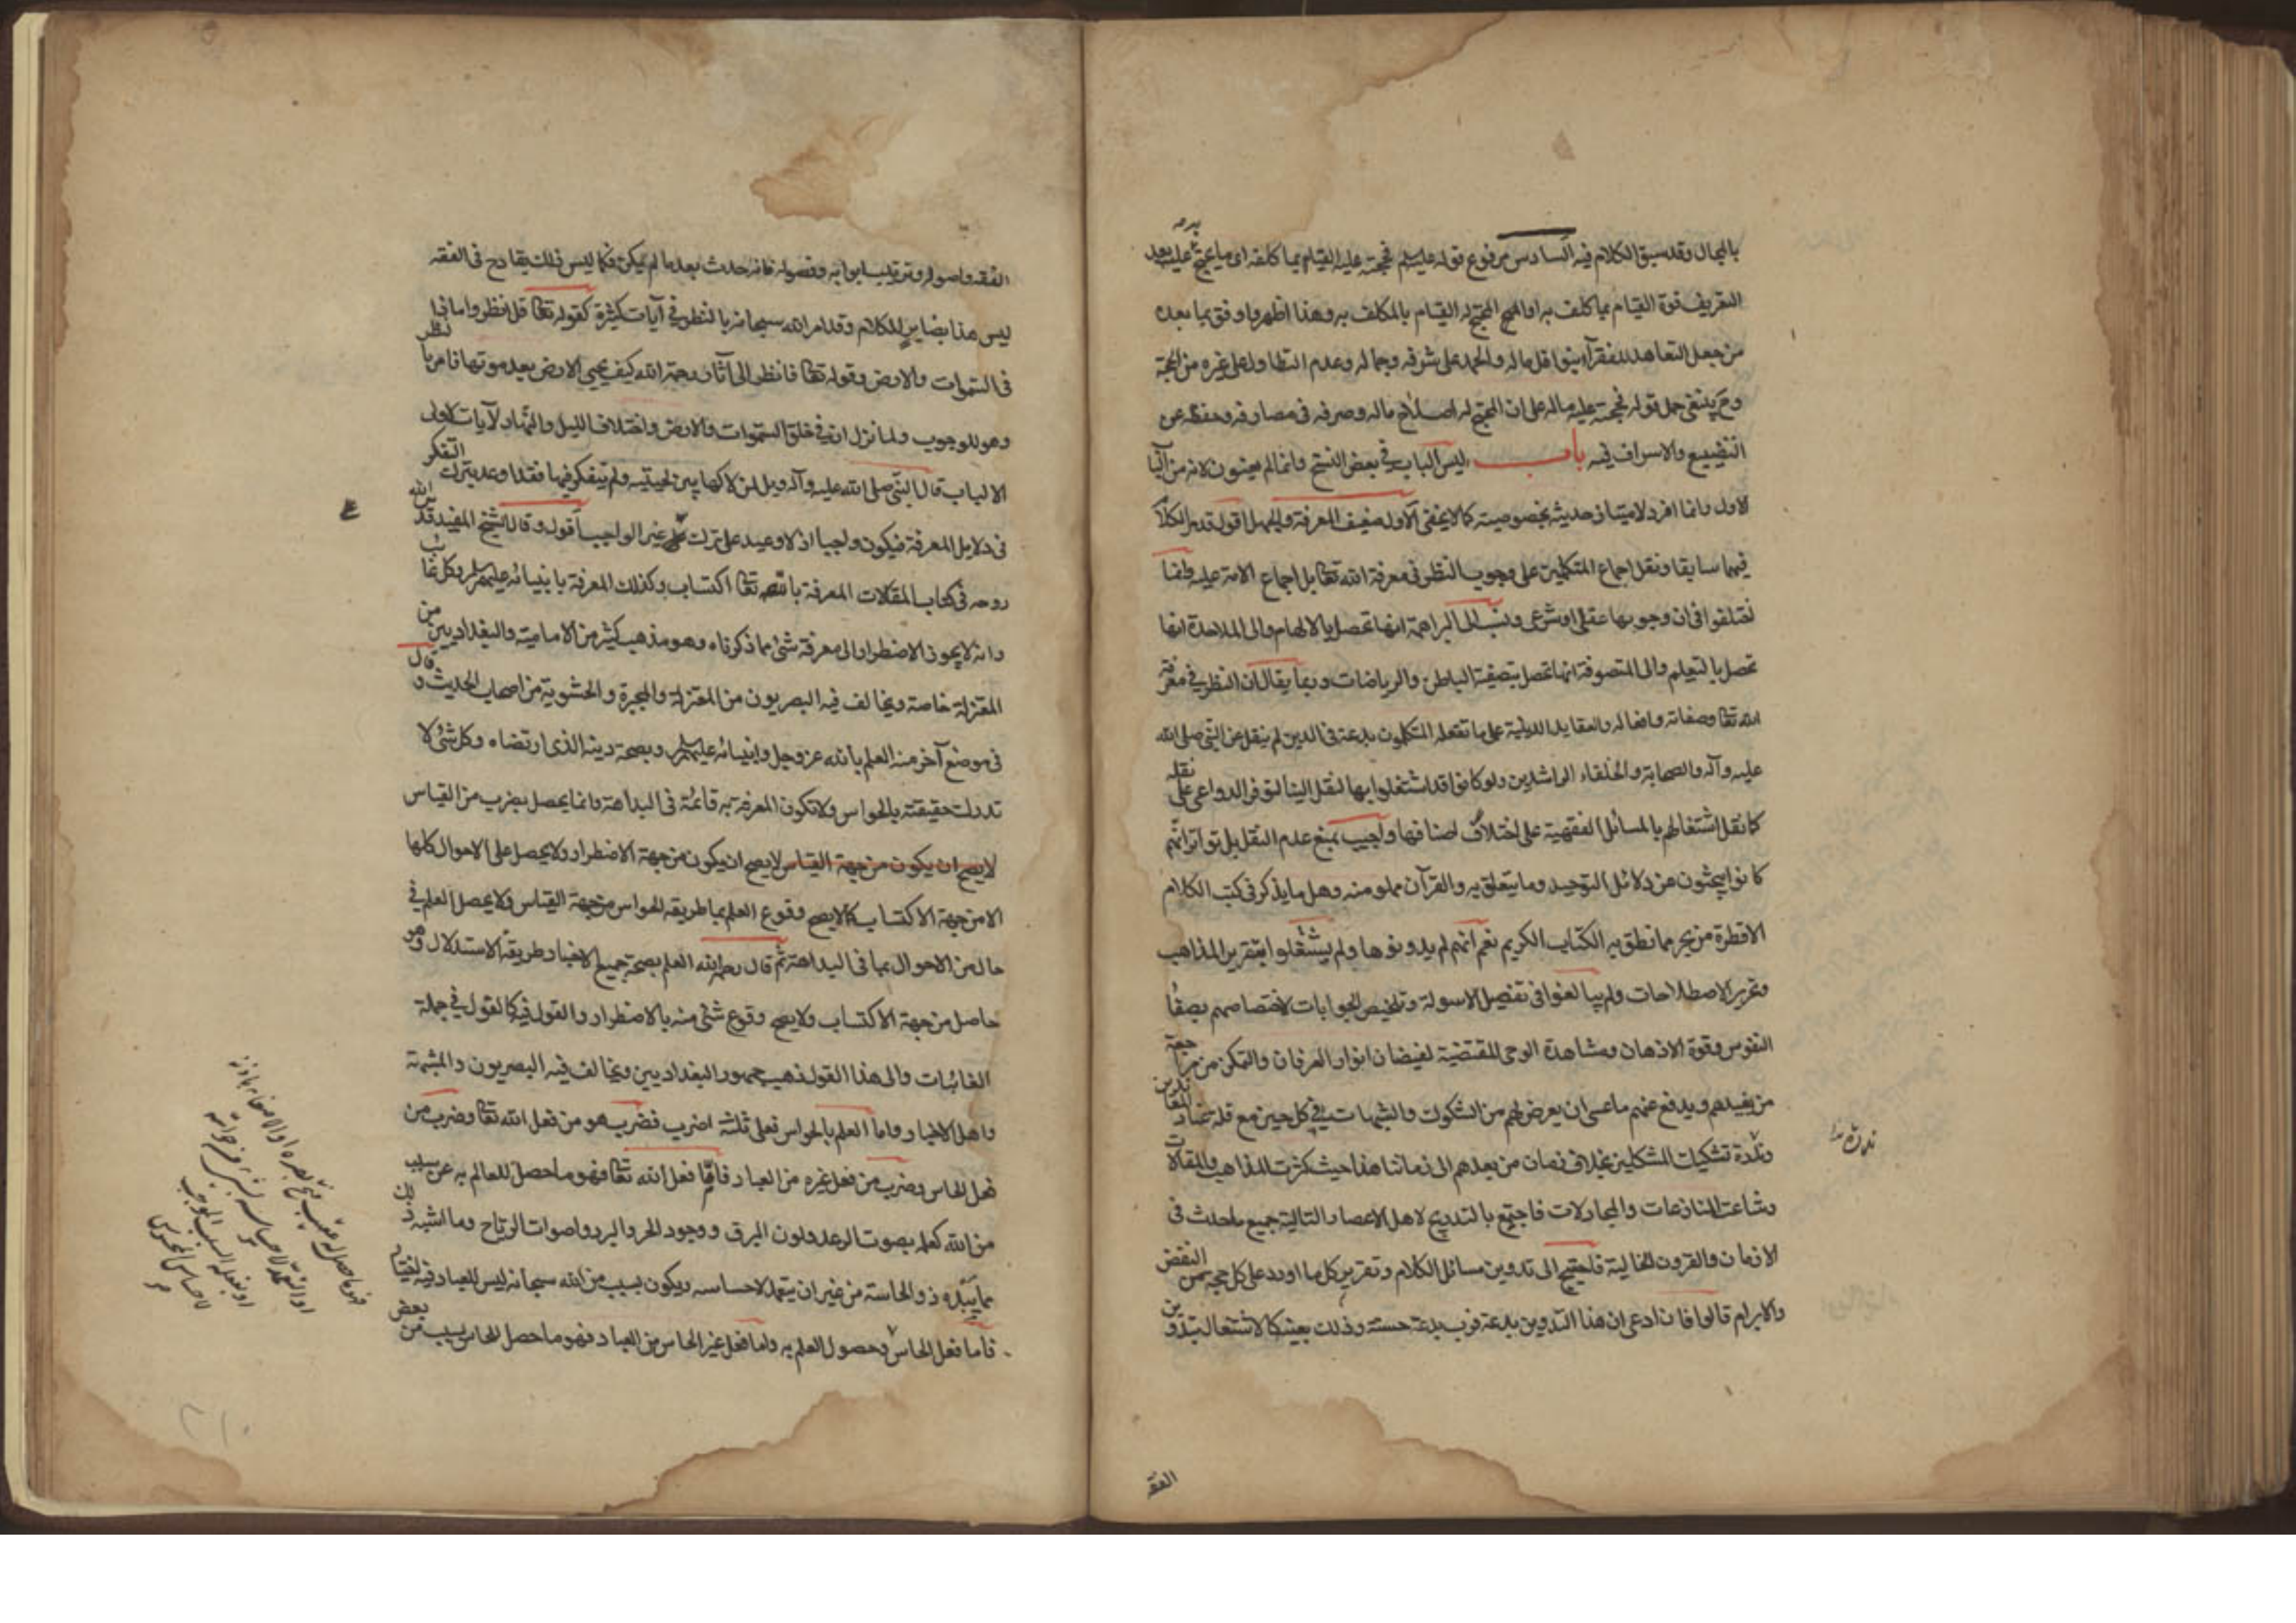 بالمحال وقد سبق الكلام فيه السادس مرفوع قوله عليه السلم فحجته عليه القيام بما كلفه اى ما يحتج به عليه بعد
التعريف قوة القيام بما كلف به او المحتج له القيام بالمكلف به وهذا اظهر واوفق بما بعده
من جعل التعاهد للفقراء بنوافل ماله والحمد على شرفه وجماله وعدم التطاول على غيره من الحجة
وح ينبغى حمل قوله فحجته عليه ماله على ان المحتج له اصلاح ماله وصرفه فى مصارفه وحفظه عن
التضييع والاسراف فيه باب ليس الباب فى بعض النسخ وانما لم يعنون لانه من الباب
الاول وانما افرد لامتياز حديثه بخصوصيته كما لا يخفى الاول ضعيف المعرفة والجهل اقول قد مر الكلام
فيهما سابقا ونقل اجماع المتكلمين على وجوب النظر فى معرفة الله تعا بل اجماع الامة عليه وانما
اختلفوا فى ان وجوبها عقلى او شرعى ونسب الى البراهمة انها تحصل بالالهام والى الملاحدة انها
تحصل بالتعليم والى المتصوفة انها تحصل بتصفية الباطن والرياضات وربما يقال ان النظر فى معرفة
الله تعا وصفاته وافعاله والعقايد الدينية على ما تفعله المتكلمون بدعة فى الدين لم ينقل عن النبى صلى الله
عليه وآله والصحابة والخلفاء الراشدين ولو كانوا قد اشتغلوا بها لنقل الينا لتوفر الدواعى على نقله
كما نقل اشتغالهم بالمسائل الفقهية على اختلاف اصنافها واجيب بمنع عدم النقل بل تواتر انهم
كانوا يبحثون عن دلائل التوحيد وما يتعلق به والقرآن مملو منه وهل ما يذكر فى كتب الكلام
الا قطرة من بحر مما نطق به الكتاب الكريم نعم انهم لم يدونوها ولم يشتغلوا بتقرير المذاهب
وتحرير الاصطلاحات ولم يبالغوا فى تفصيل الاسولة وتلخيص الجوابات لاختصاصهم بصفاء
النفوس وقوة الاذهان ومشاهدة الوحى المقتضية لفيضان انوار العرفان والتمكن من مراجعة
من يفيدهم ويدفع عنهم ما عسى ان يعرض لهم من الشكوك والشبهات فى كل حين مع قلة المعاندين
وندرة تشكيك المشككين بخلاف زمان من بعدهم الى زماننا هذا حيث كثرت المذاهب والمقالات
وشاعت المنازعات والمجادلات فاجتمع بالتدريج لاهل الاعصار التالية جميع ما حدث فى
الازمان والقرون الخالية فاحتيج الى تدوين مسائل الكلام وتقرير كل ما اورد على كل حجة من النقض
والابرام قالوا فان ادعى ان هذا التدوين بدعة فرب بدعة حسنة وذلك بعينه كالاشتغال بتدوين
ندرة
الفقه
الفقه واصوله وترتيب ابوابه وفصوله فانه حدث بعد ما لم يكن فكما ليس ذلك بقادح فى الفقه
ليس هذا بضاير للكلام وقد امر الله سبحانه بالنظر فى آيات كثيرة كقوله تعا قل انظروا ماذا
فى السموات والارض وقوله تعا فانظر الى آثار رحمة الله كيف يحيى الارض بعد موتها فامر بالنظر
وهو للوجوب ولما نزل ان فى خلق السموات والارض واختلاف الليل والنهار لآيات لاولى
الالباب قال النبى صلى الله عليه وآله ويل لمن لاكها بين لحييه ولم يتفكر فيها فقد اوعد بترك التفكر
فى دلايل المعرفة فيكون واجبا اذ لا وعيد على ترك غير الواجب اقول وقال الشيخ المفيد قدس الله
روحه فى كتاب المقالات المعرفة بالله تعا اكتساب وكذلك المعرفة بانبيائه عليهم السلم وكل غائب
وانه لا يجوز الاضطرار الى معرفة شئ مما ذكرناه وهو مذهب كثير من الامامية والبغداديين من
المعتزلة خاصة ويخالف فيه البصريون من المعتزلة والمجبرة والحشوية من اصحاب الحديث وقال
فى موضع آخر منه العلم بالله عز وجل وانبيائه عليهم السلم وبصحة دينه الذى ارتضاه وكل شئ لا
تدرك حقيقته بالحواس ولا تكون المعرفة به قائمة فى البداهة وانما يحصل بضرب من القياس
لا يصح ان يكون من جهة القياس لا يصح ان يكون من جهة الاضطرار ولا يحصل على الاحوال كلها
الا من جهة الاكتساب كما لا يصح وقوع العلم بما طريقه الحواس من جهة القياس ولا يحصل العلم فى
حال من الاحوال بما فى البداهة ثم قال رحمه الله العلم بصحة جميع الاخبار طريقه الاستدلال وهو
حاصل من جهة الاكتساب ولا يصح وقوع شئ منه بالاضطرار والقول فيه كالقول فى جملة
الغائبات والى هذا القول ذهب جمهور البغداديين ويخالف فيه البصريون والمشبهة
واهل الاخبار واما العلم بالحواس فعلى ثلثة اضرب فضرب هو من فعل الله تعا وضرب من
فعل الحاس وضرب من فعل غيره من العباد فاما فعل الله تعا فهو ما حصل للعالم به عن سبب
من الله كعلمه بصوت الرعد ولون البرق ووجود الحر والبرد واصوات الرياح وما اشبه ذلك
مما يبده ذو الحاسة من غير ان يتعمد لاحساسه ويكون بسبب من الله سبحانه ليس للعباد فيه اختيار
فاما فعل الحاس وحصول العلم به واما فعل غير الحاس من العباد فهو ما حصل للحاس بسبب من بعض
فهو ما حصل له عقيب فتح بصره او الاصغاء باذنه
او التعمد لاحساسه بشئ من حواسه
او بفعله السبب الموجب
لاحساس المحسوس